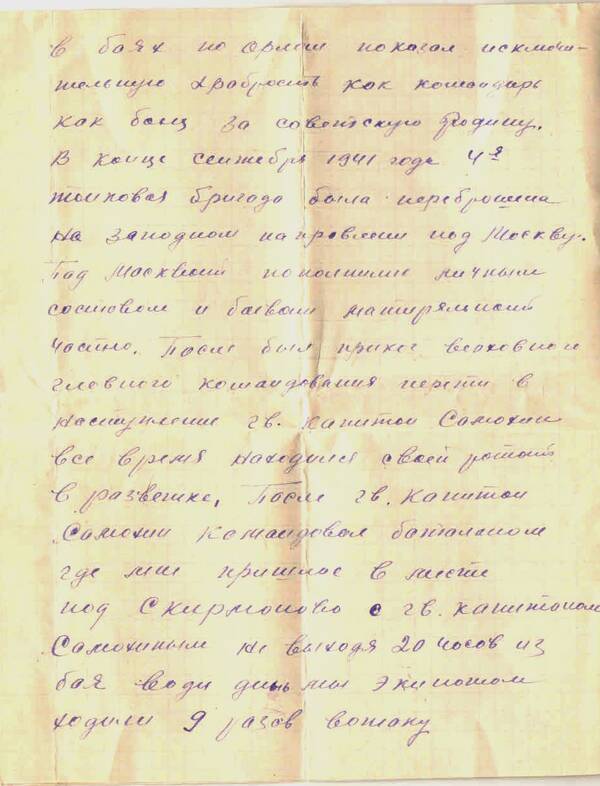 в баях по орлом показал исключи-
тельную храбрость как командирь
как боец за советскую Родину.
В конце сентебря 1941 года 4я
тонковая бригада была переброшина
на западном направлени под Москву.
Под Масквой пополнили личным
составом и боевой матиряльной
частю. После был приказ верховного
главного командования перети в
наступление гв. капитон Самохин
все время находился своей ротой
в разветке, После гв. капитон
Самохин командовал баталионом
где мне пришлос в месте
под Скирмоново с гв. капитоном
Самохиным не выходя 20 часов из
бая води динь мы экипажом
ходили 9 разов вотаку